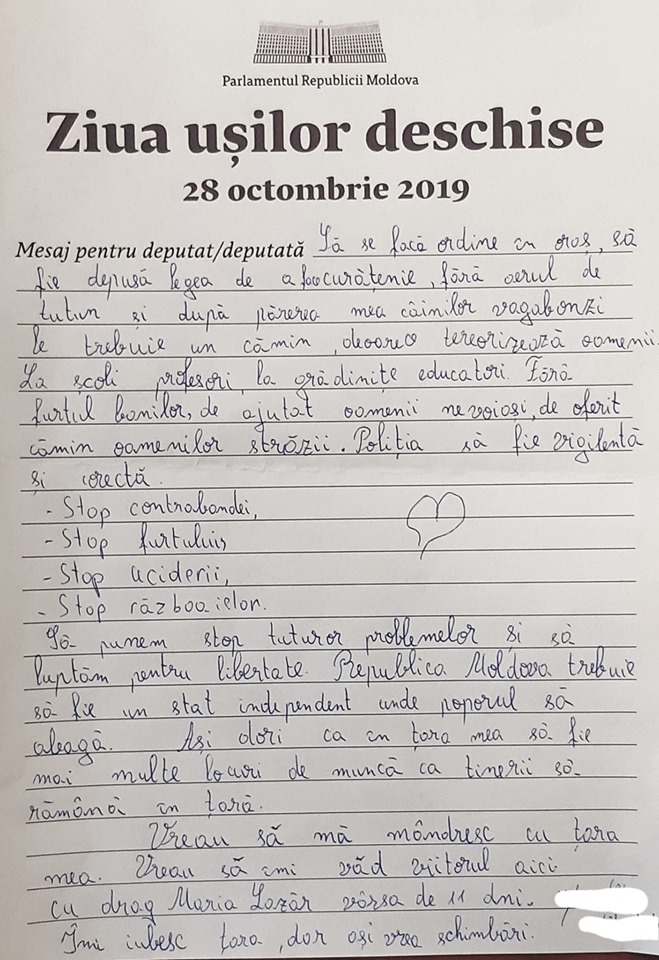 Parlamentul Republicii Moldova
Ziua ușilor deschise
28 octombrie 2019
Mesaj pentru deputat/deputată Să se facă ordine în oraș, să
fie depusă legea de a face curățenie, fără aerul de
tutun și după părerea mea câinilor vagabonzi
le trebuie un cămin, deoarece tereorizează oamenii.
La școli profesori, la grădinițe educatori. Fără
furtul banilor, de ajutat oamenii nevoiași, de oferit
cămin oamenilor străzii. Poliția să fie vigilentă
și corectă.
- Stop contrabandei,
- Stop furtului,
- Stop uciderii,
- Stop războaielor.
Să punem stop tuturor problemelor și să
luptăm pentru libertate. Republica Moldova trebuie
să fie un stat independent unde poporul să
aleagă. Aș dori ca în țara mea să fie
mai multe locuri de muncă ca tinerii să
rămână în țară.
Vreau să mă mândresc cu țara
mea. Vreau să îmi văd viitorul aici
cu drag Maria Lazăr vârsa de 11 ani.
Îmi iubesc țara, dar aș vrea schimbări.